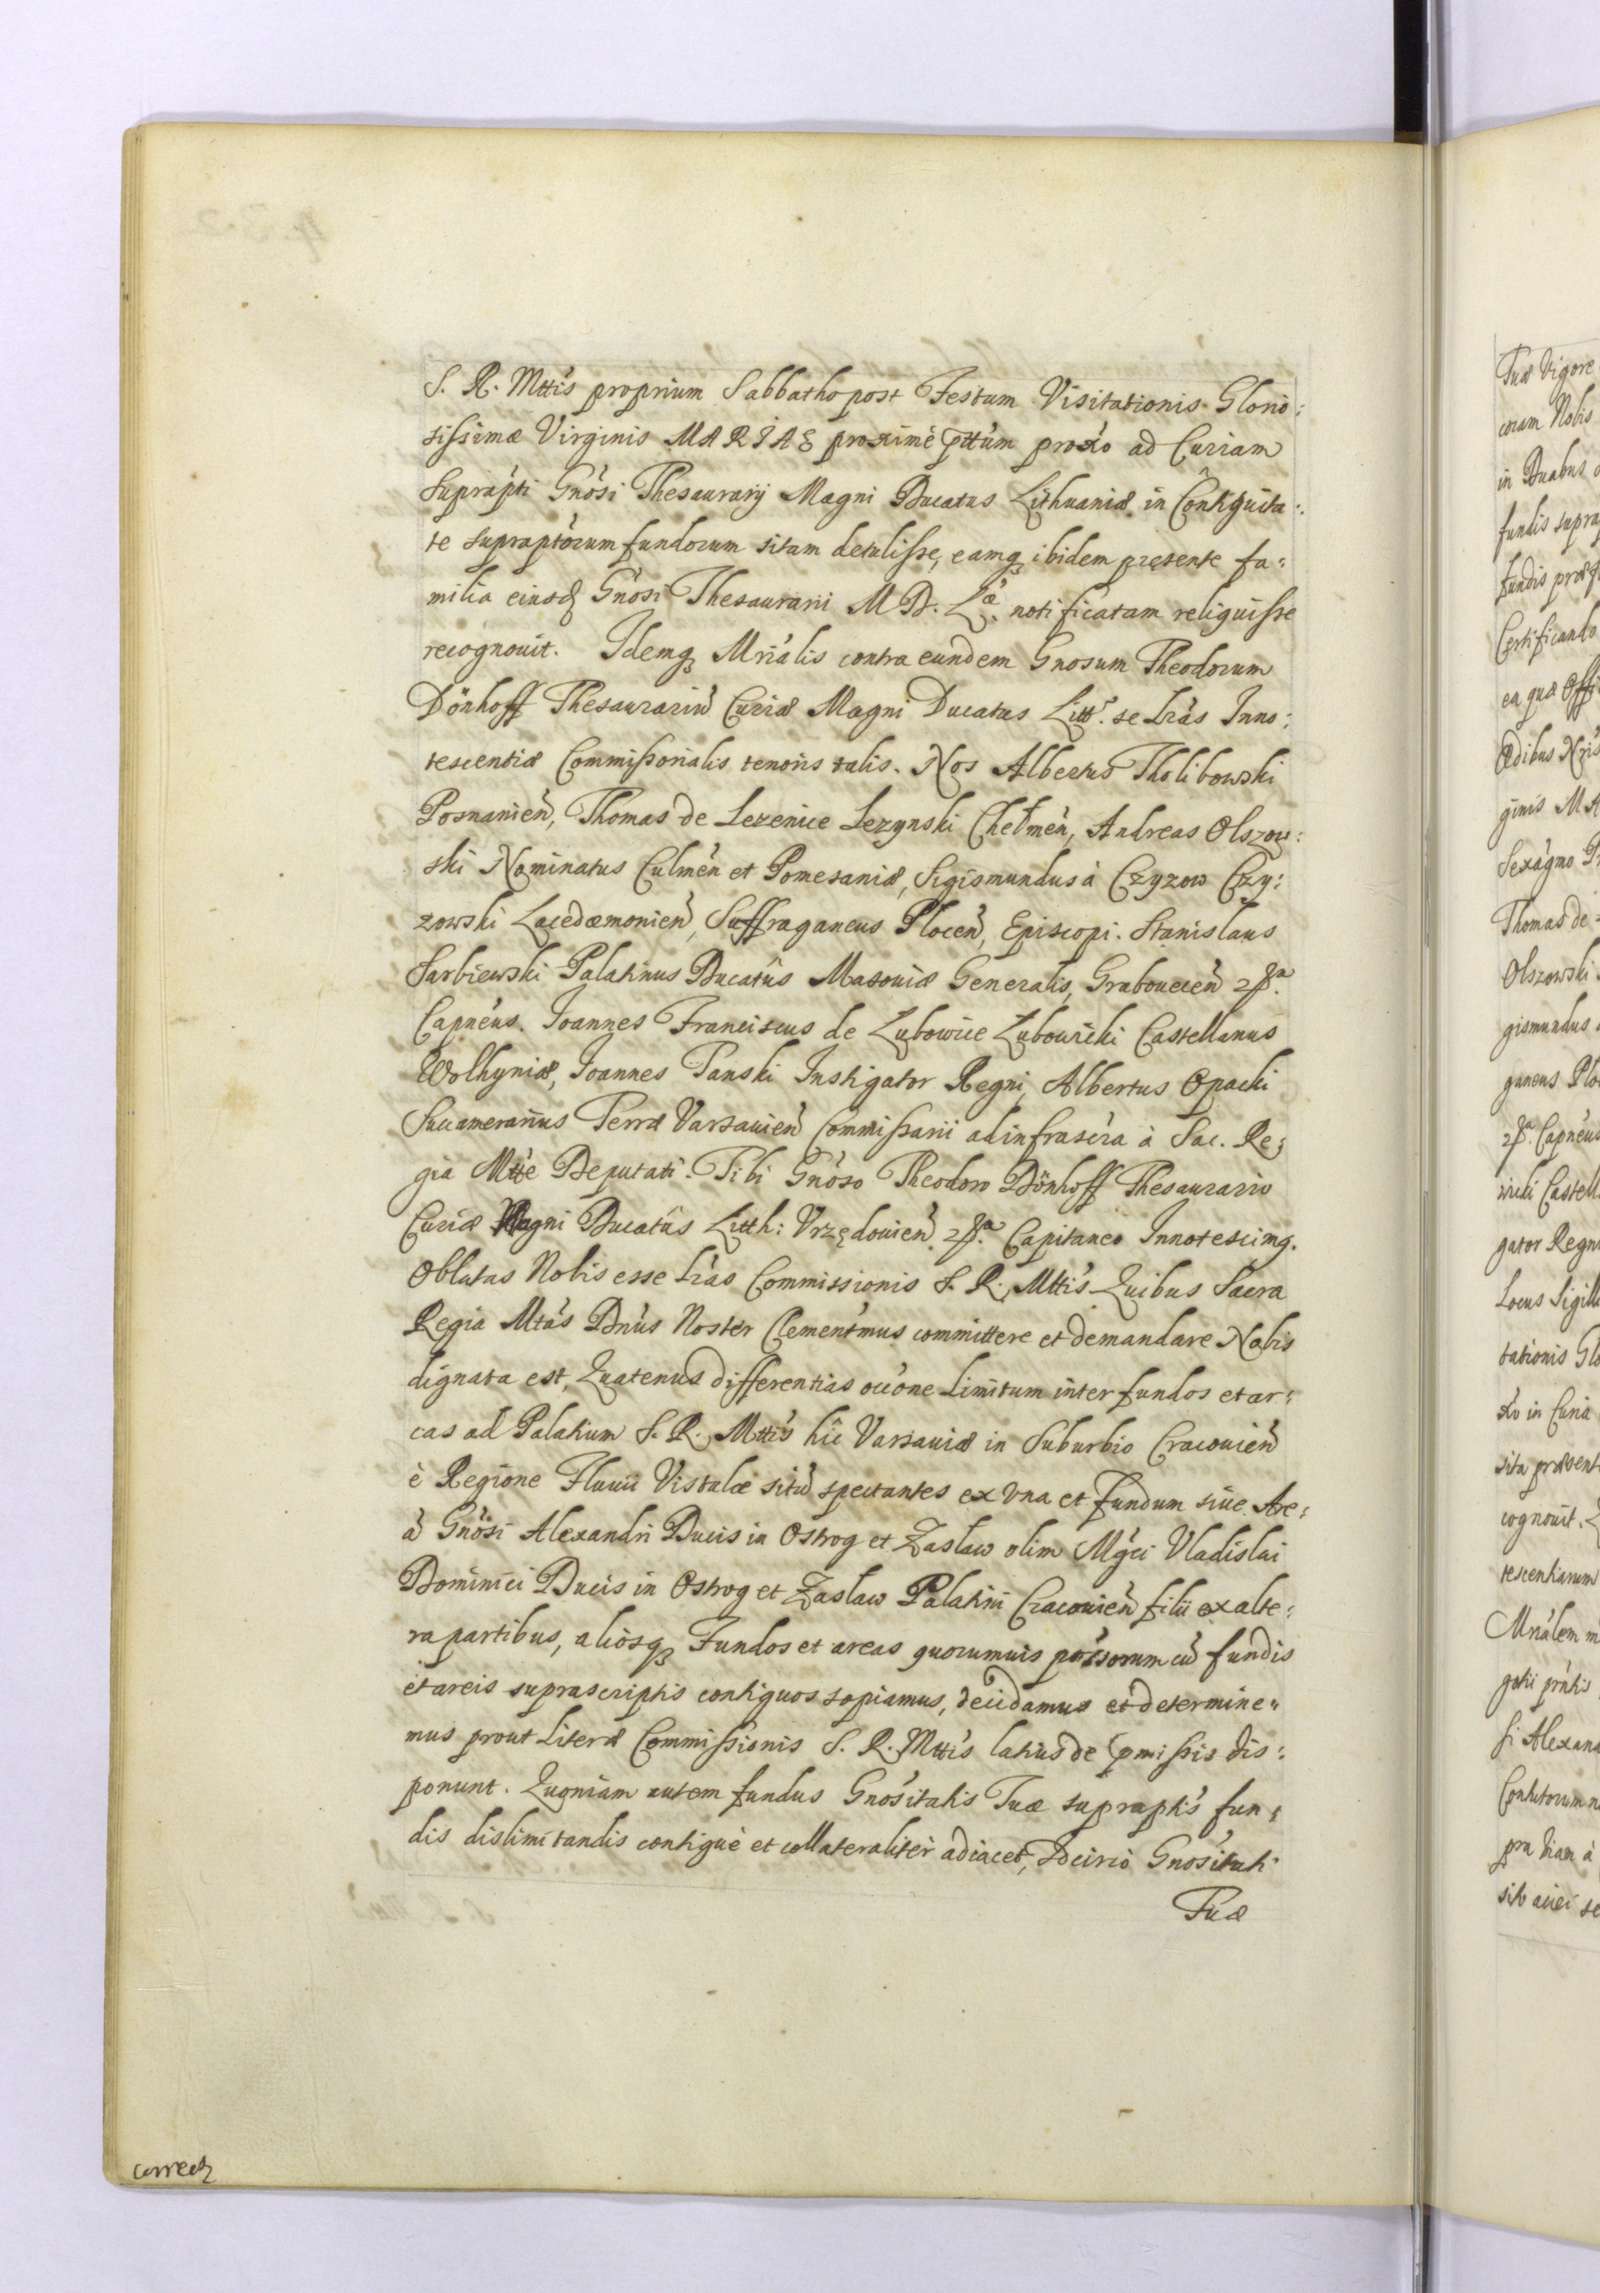 S. R. Mttis proprium Sabbatho post Festum Visitationis Glorio:
sissimæ Virginis MARIAE proximè pttum proxo ad Curiam
Suprapti Gnosi Thesaurarij Magni Ducatus Lithuaniæ in Contiguita:
te supraptorum fundorum sitam detulisse, eamq ibidem pręsente fa:
milia eiusd Gnosi Thesaurarii M D. Læ notificatam reliquisse
recognouit. Idemq Mrialis contra eundem Gnosum Theodorum
Dönhoff Thesaurariu Curiæ Magni Ducatus Litt. se Lras Inno:
tescentiæ Commissorialis tenoris talis. Nos Albertus Tholibowski
Posnanien, Thomas de Lezenice Lezynski Chełmen, Andreas Olszow:
ski Nominatus Culmen et Pomesaniæ, Sigismundus à Czyzow Czy:
zowski Lacedæmonien, Suffraganeus Plocen, Episcopi. Stanislaus
Sarbiewski Palatinus Ducatus Masouiæ Generalis, Grabouecen
Capneus. Joannes Franciscus de Lubowice Lubowicki Castellanus
Wolhyniæ, Joannes Panski Instigator Regni, Albertus Opacki
Succamerarius Terræ Varsauien Commissarii ad infrascra à Sac. Re:
gia Mtte Deputati. Tibi Gnoso Theodoro Dönhoff Thesaurario
Curiæ Magni Ducatus Litth: Vrzędouien Capitaneo Innotescimq.
Oblatas Nobis esse Lras Commissionis S. R. Mttis Quibus Sacra
Regia Mtas Dnus Noster Clementmus committere et demandare Nobis
dignata est, Quatenus differentias occone Limitum inter fundos et ar:
cas ad Palatium S. R. Mttis hic Varsauiæ in Suburbio Cracouien
è Regione Fluuii Vistulæ situ spectantes ex vna et fundum siue Are:
a Gnosi Alexandri Ducis in Ostrog et Zaslaw olim Mgci Vladislai
Dominici Ducis in Ostrog et Zaslaw Palatini Cracouien filii ex alte:
ra partibus, aliosq Fundos et areas quorumuis possorum cu fundis
et areis suprascriptis contiguos sopiamus, decidamus et determine:
mus prout Literæ Commissionis S. R. Mttis latius de pmissis dis:
ponunt. Quoniam autem fundus Gnositatis Tuæ supraptis fun:
dis dislimitandis contiguè et collateralitèr adiacet, Idcirco Gnositati
Tuæ
correct
Tuæ Vigore
coram Nobis
in Duabus
fundis supra
fundis præf
Certificando
ea quæ Offi
Ædibus Nris
ginis MA
Sexagmo
Thomas de
Olszowski
gismundus
ganeus Plo
Capneus
wicki Castell
gator Regni
Locus Sigilli
tationis Glo
xo in Curia
sita præsent
cognouit.
tescentiarum
Mrialem
gotii
si Alexand